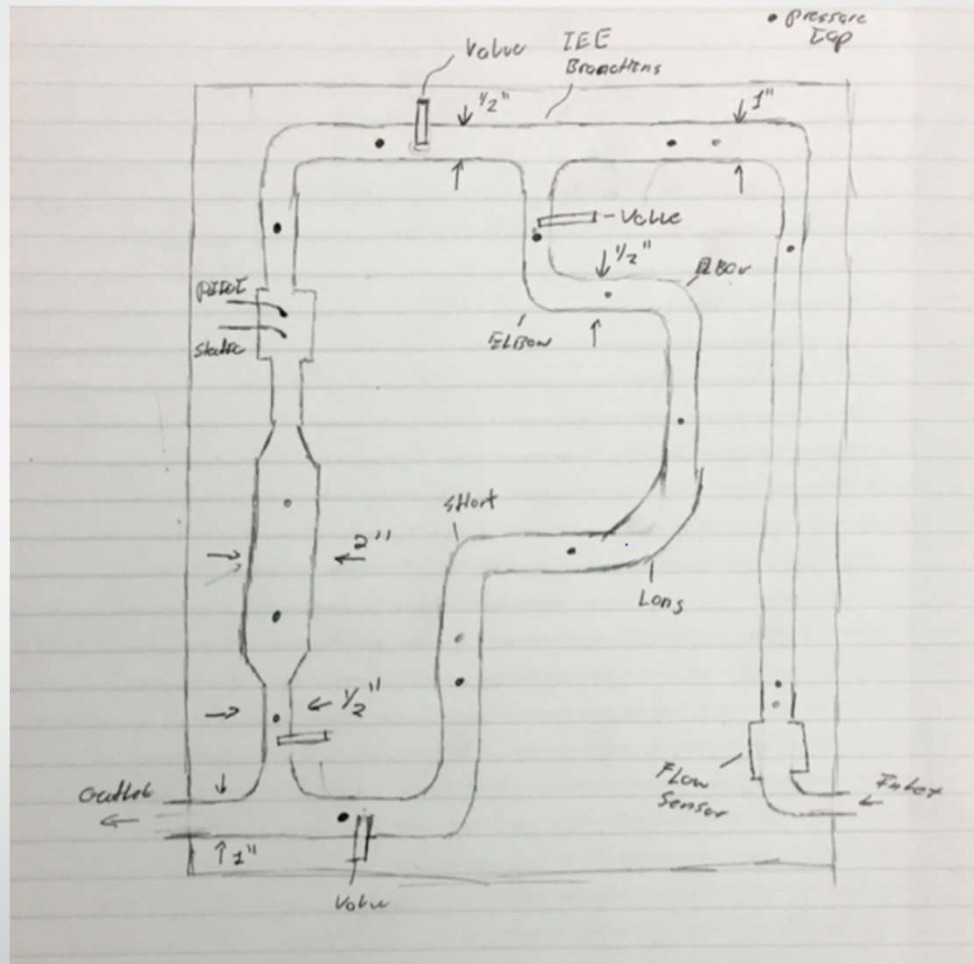 • Pressure
Tap
Valve
TEE
Branctions
1/2"
1"
-Valve
1/2"
ELBow
ELBow
PITOT
Static
SHort
2"
Long
1/2"
Outlet
1"
Flow
Sensor
Inlet
Valve